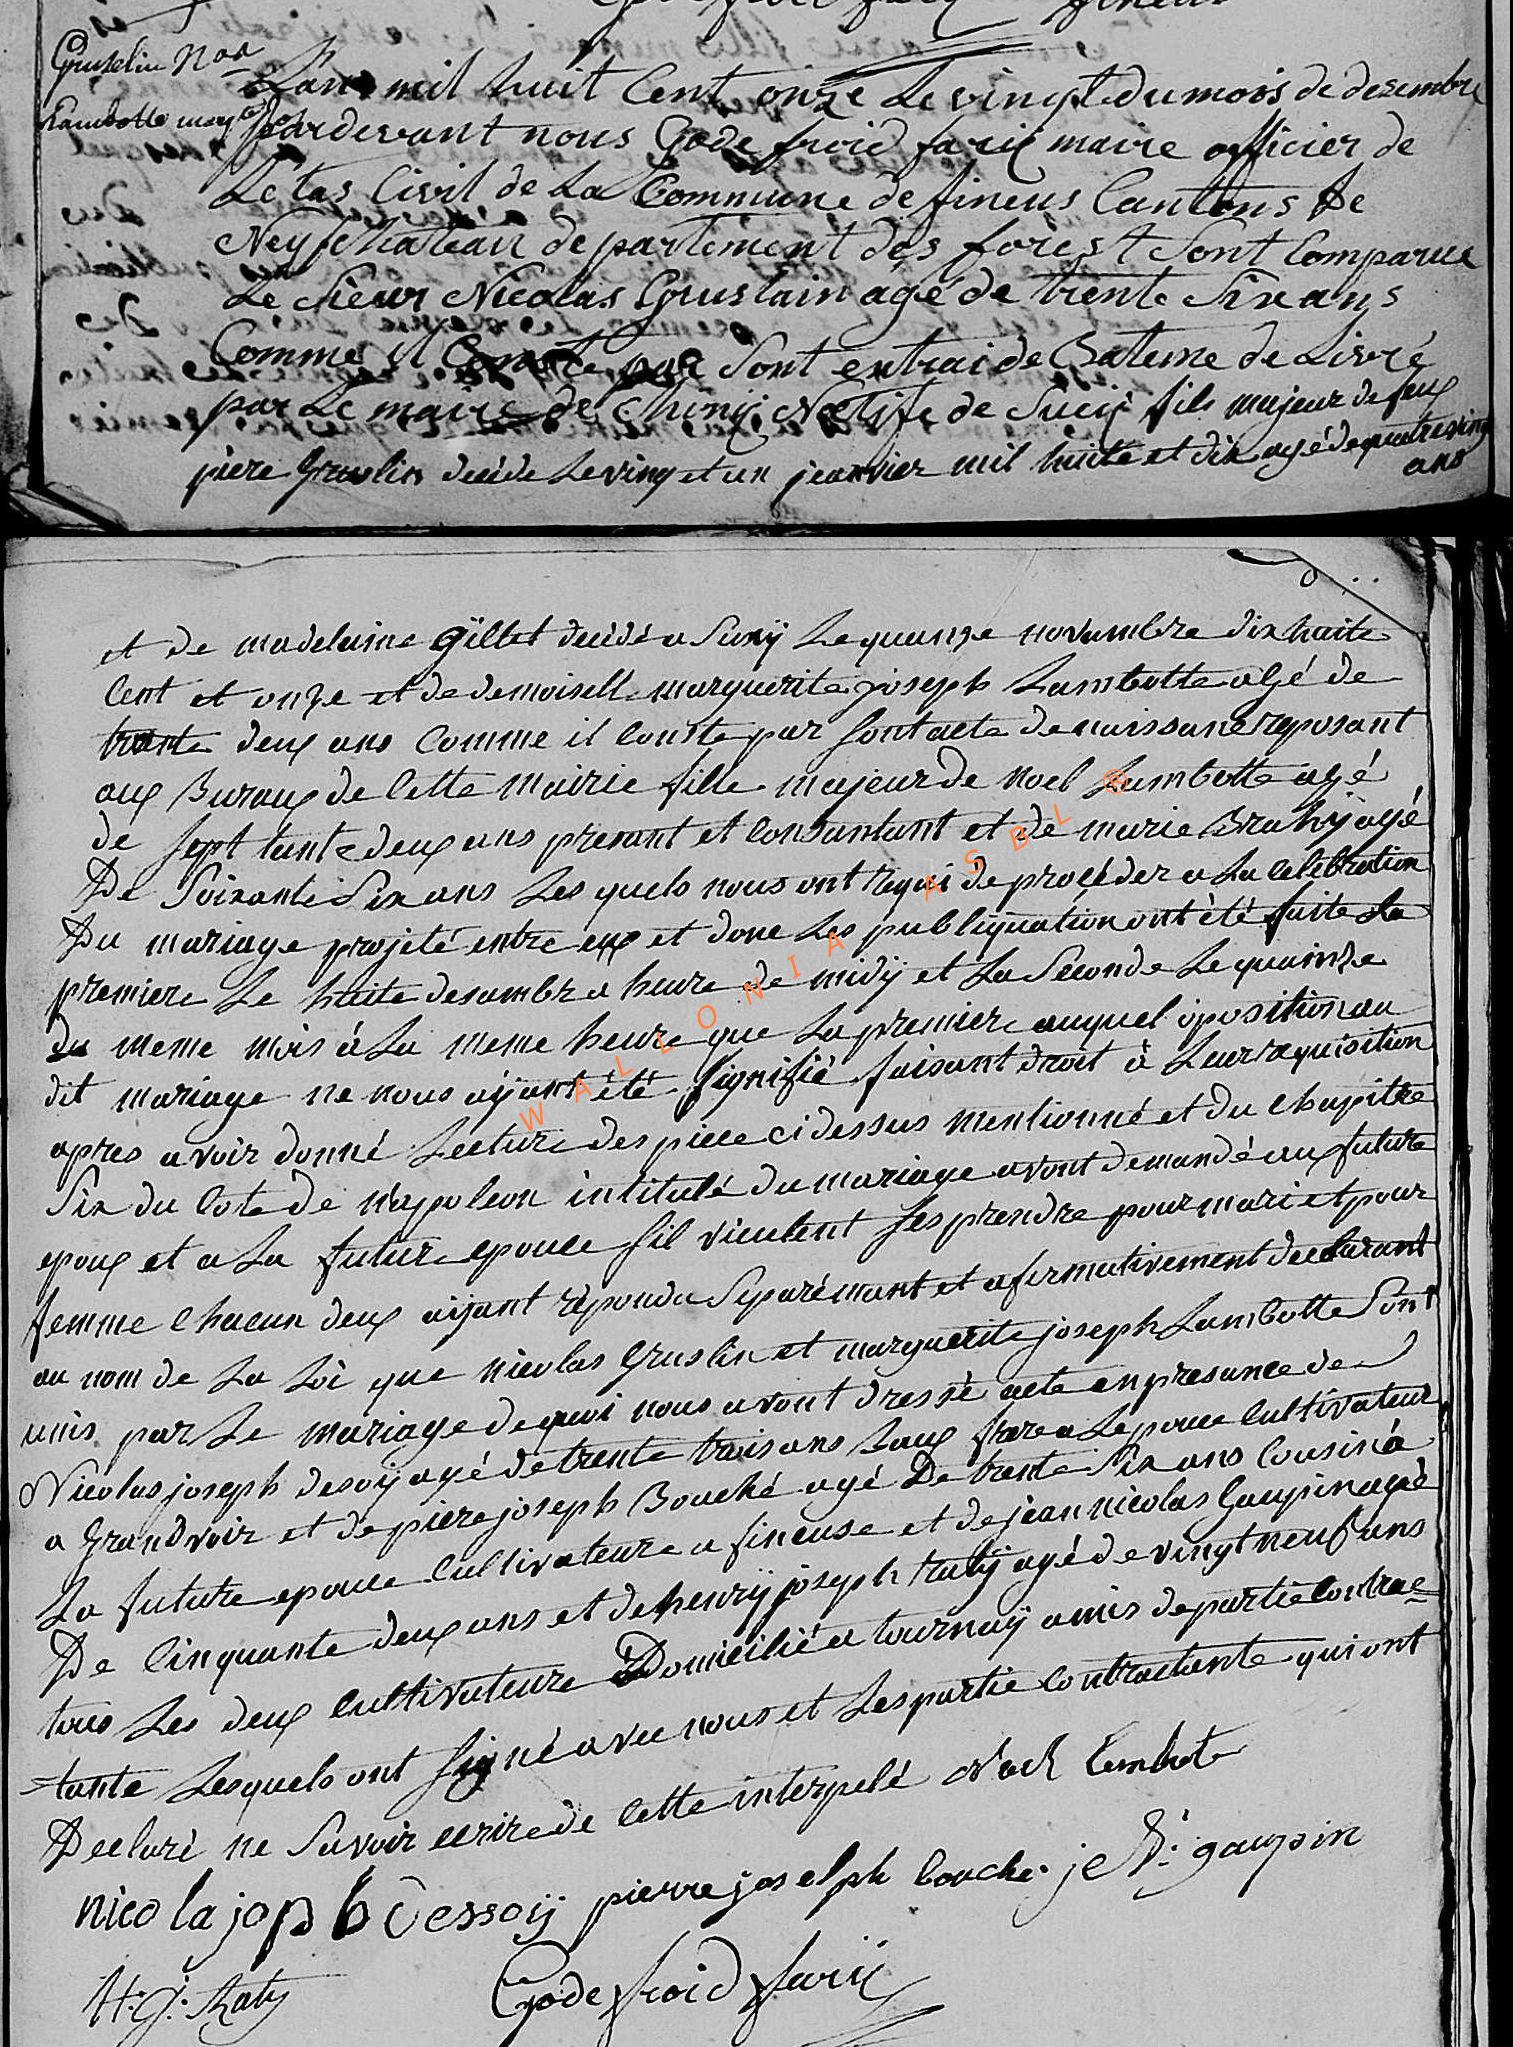 Gruslin Nas
Lambotte
Lan mil huit Cent onze Le vingt du mois de desembre
pardevant nous Godefroid farÿ maire officier de
Letas Civil de La Commune de fineus Cantons de
Neufchateau departement des forest Sont Comparue
Le Sieur Nicolas Gruslain agé de trente Six ans
Comme il Conste par Sont extrai de Bateme de Livré
par Le maire de Chinÿ Natife de Suxÿ fils majeur de feux
piere Gruslin decéde Le ving et un jeanvier mil huite et dix agé de quatreving
ans
et de madelaine Gïllet decédé a Suxÿ Le quinze novambre dix huite
Cent et onze et de demoiselle marguerite joseph Lambotte agé de
trante deux ans Comme il Conste par sont acte de naissance reposant
aux Buraux de Cette mairie fille majeur de noel Lambotte agé
de septtante deux ans presant et Consantant et de marie Brahÿ agé
De Soixante Six ans Les quels nous ont requi de proçéder a La Celebration
Du mariage projeté entre eux et donc Les publiquation ont été faite La
premiere Le huite desambre a heure de midÿ et La Seconde Le quainze
du meme mois â La meme heure que La premiere auquel oposition au
dit mariage ne nous aÿant été signifié faisant droit à Leur requisition
apres avoir donné Lecture des piece ci dessus mentionné et du Chapitre
Six du Cote de Napoleon intitulé du mariage avont demandé au future
epoux et a La future epouce sil vieulent Ses prendre pour mari et pour
femme Chacun deux aÿant répondu Séparémant et afirmativement declarant
au nom de La Loi que nicolas Gruslin et marguerite joseph Lambotte Sont
unis par Le mariage de quoi nous avont dressé acte en presance de
Nicolas joseph desoÿ agé de trente trois ans Baux frare a Lepouce Cultivateur
a Grandvoir et de piere joseph Bouché agé De trente Six ans Cousin â
La future epouce Cultivateure a fineuse et de jean nicolas Gaupin agé
De Cinquante deux ans et de henrÿ joseph ratÿ agé de vingt neuf ans
tous Les deux Cultivateure Domicilié a tournaÿ amis de partie Contrac=
=tante Lesquels ont signé avec nous et Les partie Contractante qui ont
Declaré ne Savoir ecrire de Cette interpelé Noel Lambote
nicola josph Dessoÿ pierre joselph bouche j N: gaupin
H: j: Raty Godefroid farÿ
WALLONIA ASBL ®